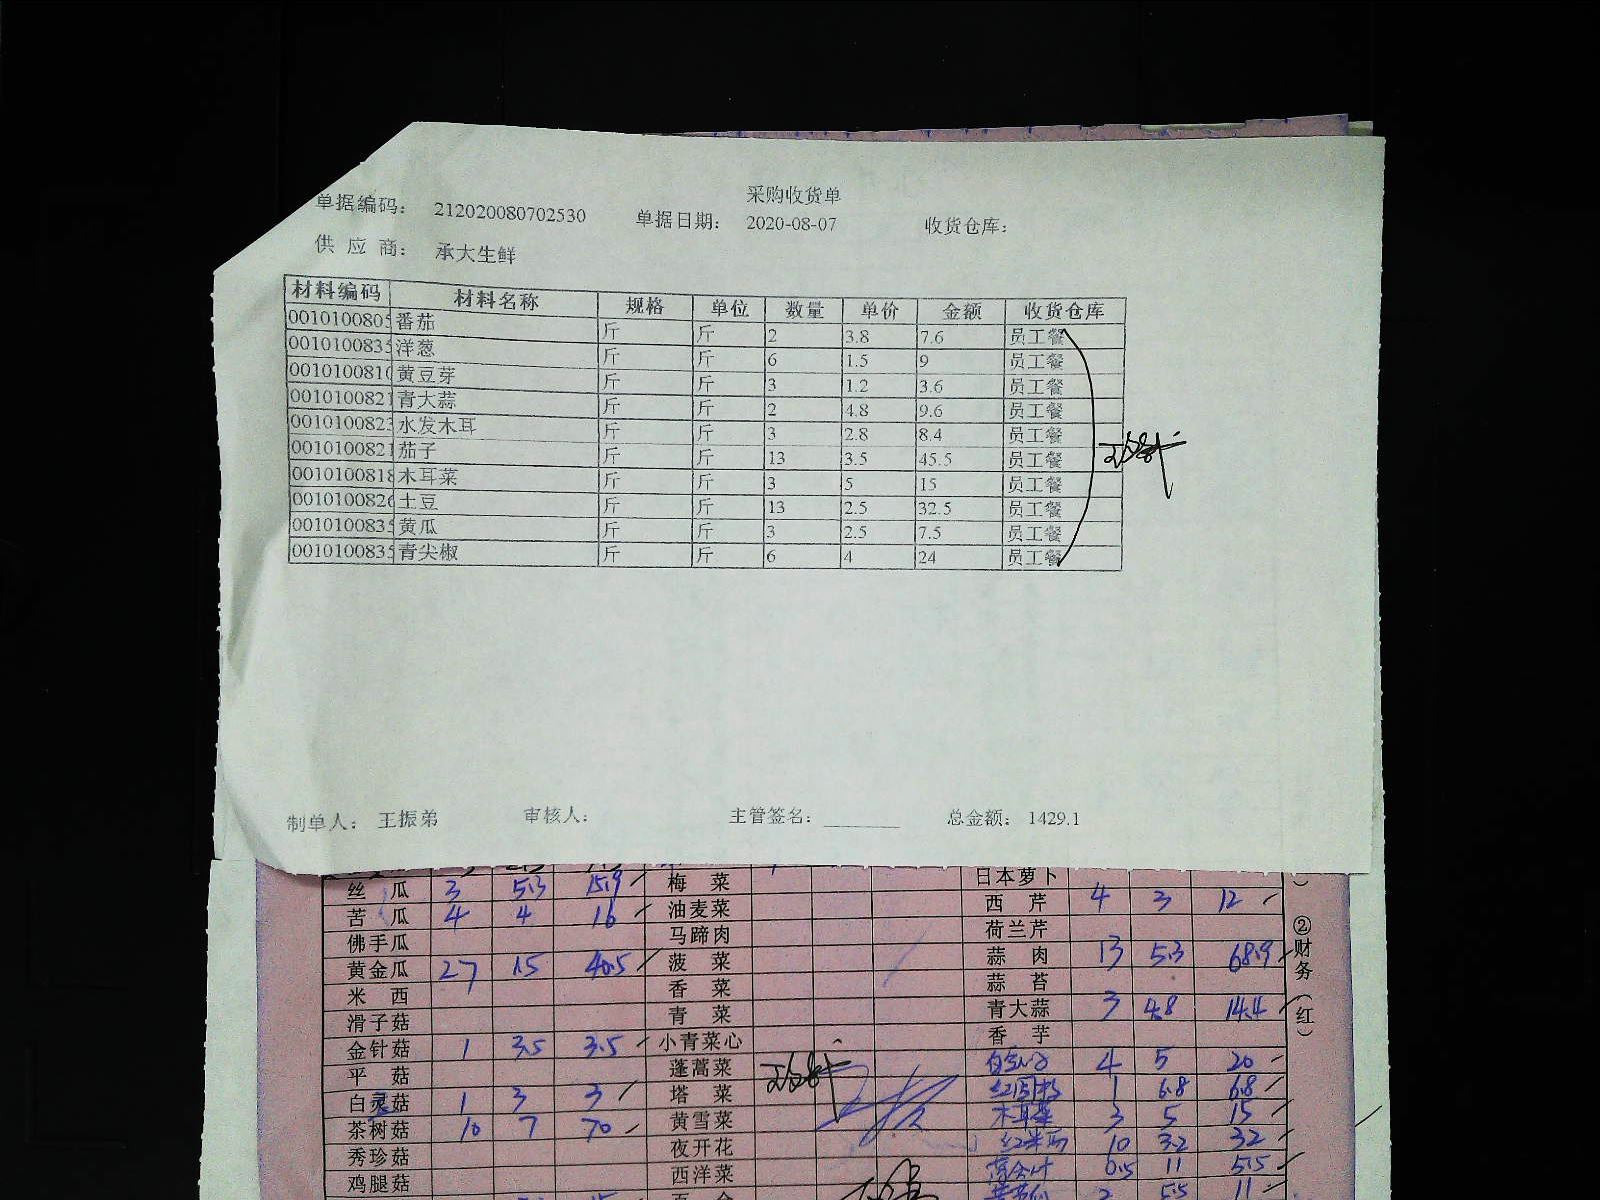 采购收货单
单据编码： 212020080702530 单据日期： 2020-08-07 收货仓库：
供 应 商： 承大生鲜
材料编码 材料名称 规格 单位 数量 单价 金额 收货仓库
0010100805 番茄 斤 斤 2 3.8 7.6 员工餐
0010100835 洋葱 斤 斤 6 1.5 9 员工餐
001010081 黄豆芽 斤 斤 3 1.2 3.6 员工餐
0010100821 青大蒜 斤 斤 2 4.8 9.6 员工餐
001010082 水发木耳 斤 斤 3 2.8 8.4 员工餐
0010100821 茄子 斤 斤 13 3.5 45.5 员工餐
0010100818 木耳菜 斤 斤 3 5 15 员工餐
001010082 土豆 斤 斤 13 2.5 32.5 员工餐
0010100835 黄瓜 斤 斤 3 2.5 7.5 员工餐
0010100835 青尖椒 斤 斤 6 4 24 员工餐
制单人： 王振弟 审核人： 主管签名： 总金额： 1429.1
日本萝卜
丝 瓜 3 5.3 15.9 梅 菜 西 芹 4 3 12
苦 瓜 4 4 16 油麦菜 荷兰芹
佛手瓜 马蹄肉 蒜 肉 13 5.3 68.9
黄金瓜 27 1.5 40.5 菠 菜 蒜 苔
米 西 香 菜 青大蒜 3 4.8 14.4
滑子菇 青 菜 香 芋
金针菇 1 3.5 3.5 小青菜心 4 5 20
平 菇 蓬蒿菜 1 6.8 6.8
白灵菇 1 3 3 塔 菜 木耳菜 3 5 15
茶树菇 10 7 70 黄雪菜 10 3.2 32
秀珍菇 夜开花 0.5 11 5.5
鸡腿菇 西洋菜 2 5.5 11
②财务（红）